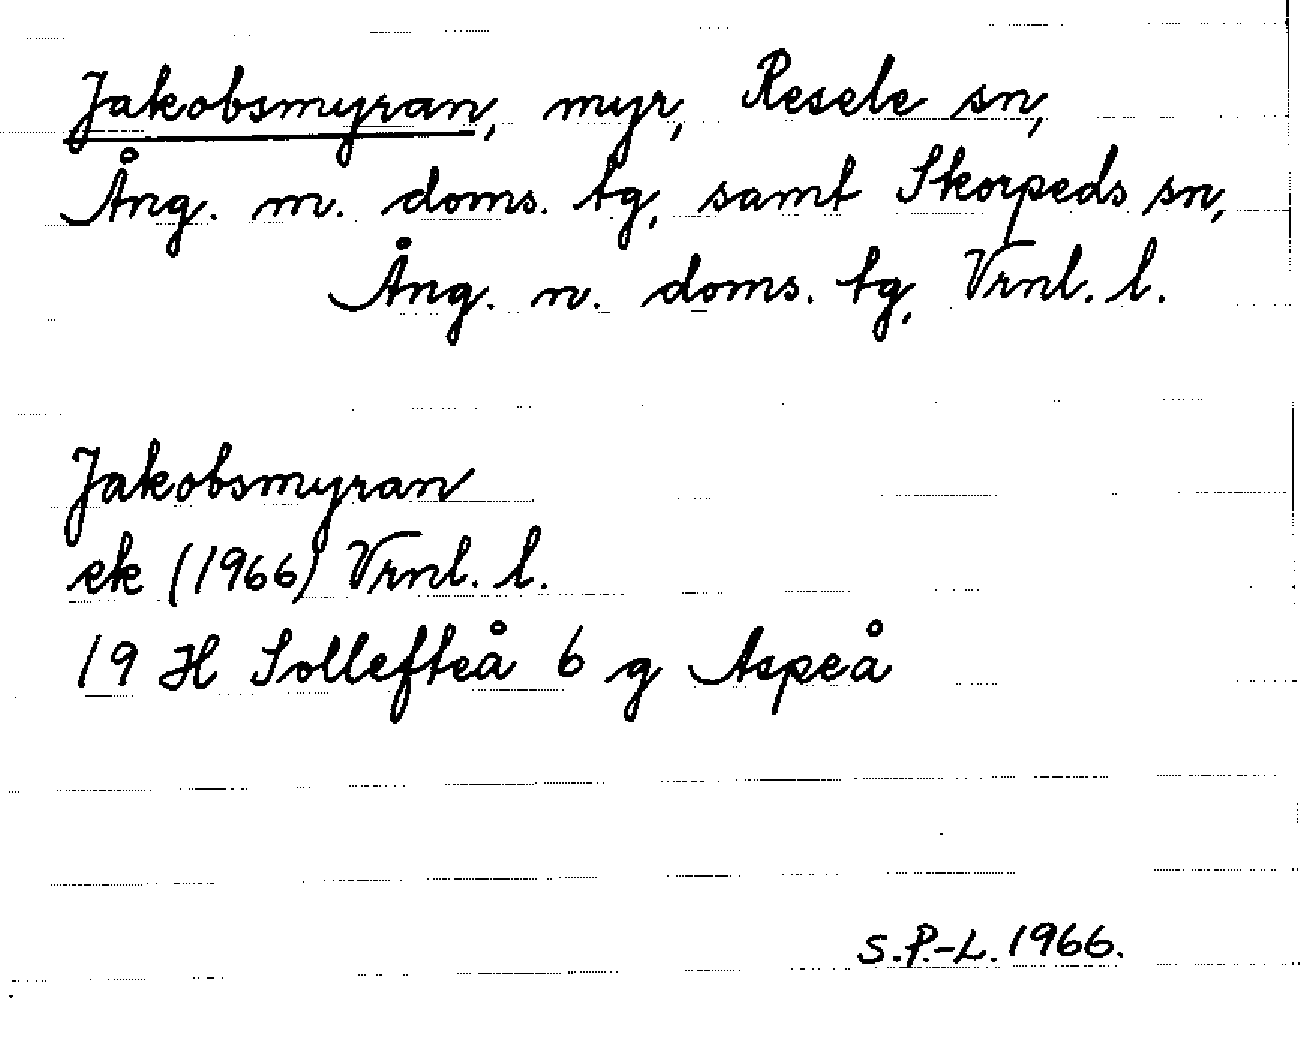 Jakobsmyran, myr, Resele sn,
Ång. m. doms. tg, samt Skorpeds sn,
Ång. n. doms. tg, Vrnl. l.
Jakobsmyran
ek (1966) Vrnl. l.
19 H Sollefteå 6 g Aspeå
S.P.-L. 1966.